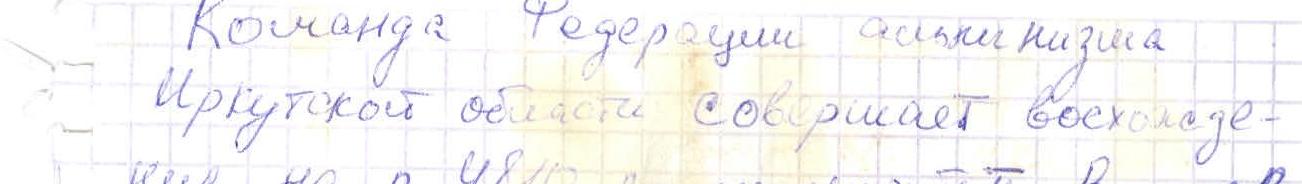 Команда Федерации альпинизма
Иркутской области совершает восхожде-
ние на п. 4810